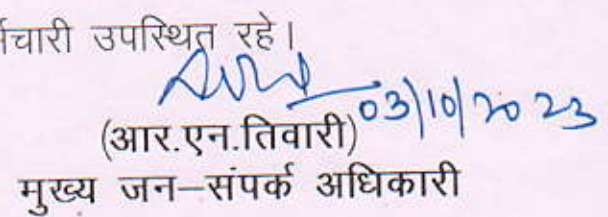 उपस्थित रहे।
03/10/2023
(आर.एन.तिवारी)
मुख्य जन–संपर्क अधिकारी